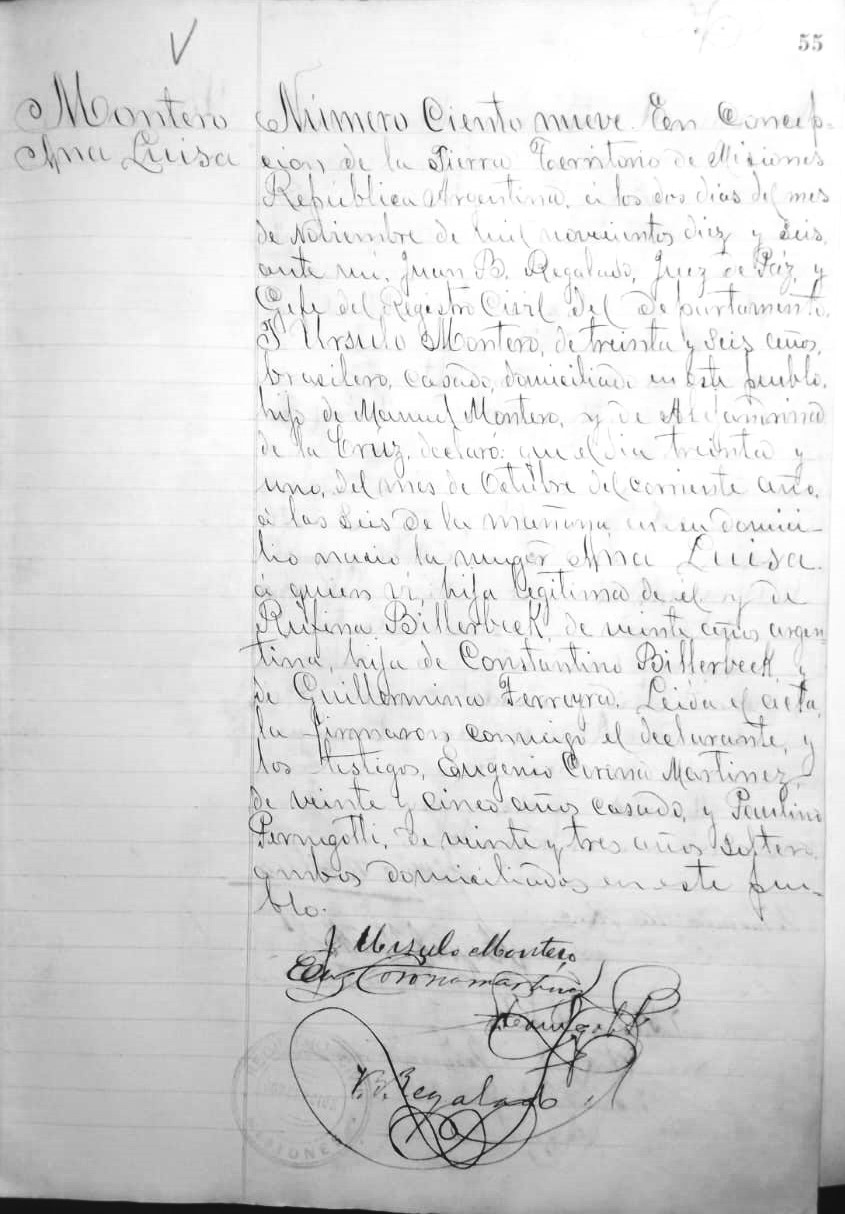 V
55
Montero
Ana Luisa
Número Ciento nueve. En Concep-
cion de la Sierra Territorio de Misiones
República Argentina, á los dos dias del mes
de Noviembre de mil novecientos diez y seis,
ante mi, Juan B. Regalado, Juez de Páz, y
Gefe del Registro Civil del Departamento,
J Ursulo Montero, de treinta y seis años,
brasilero, casado, domiciliado en este pueblo,
hijo de Manuel Montero, y de Alejandrina
de la Crúz, declaró: que el dia treinta y
uno, del mes de Octubre del corriente año,
á las seis de la mañana, en su domici-
lio nacio la muger Ana Luisa.
á quien vi, hija legitima de él y de
Rufina Billerbeck, de veinte años argen-
tina, hija de Constantino Billerbeck, y
de Guillermina Ferreyra. Leida el acta,
la firmaron conmigo el declarante, y
los testigos, Eugenio Corona Martinez,
de veinte y cinco años casado, y Paulino
Perugotti, de veinte y tres años soltero,
ambos domiciliados en este pue-
blo.
J Ursulo Montero
Eug Corona martinez
J. B. Regalado